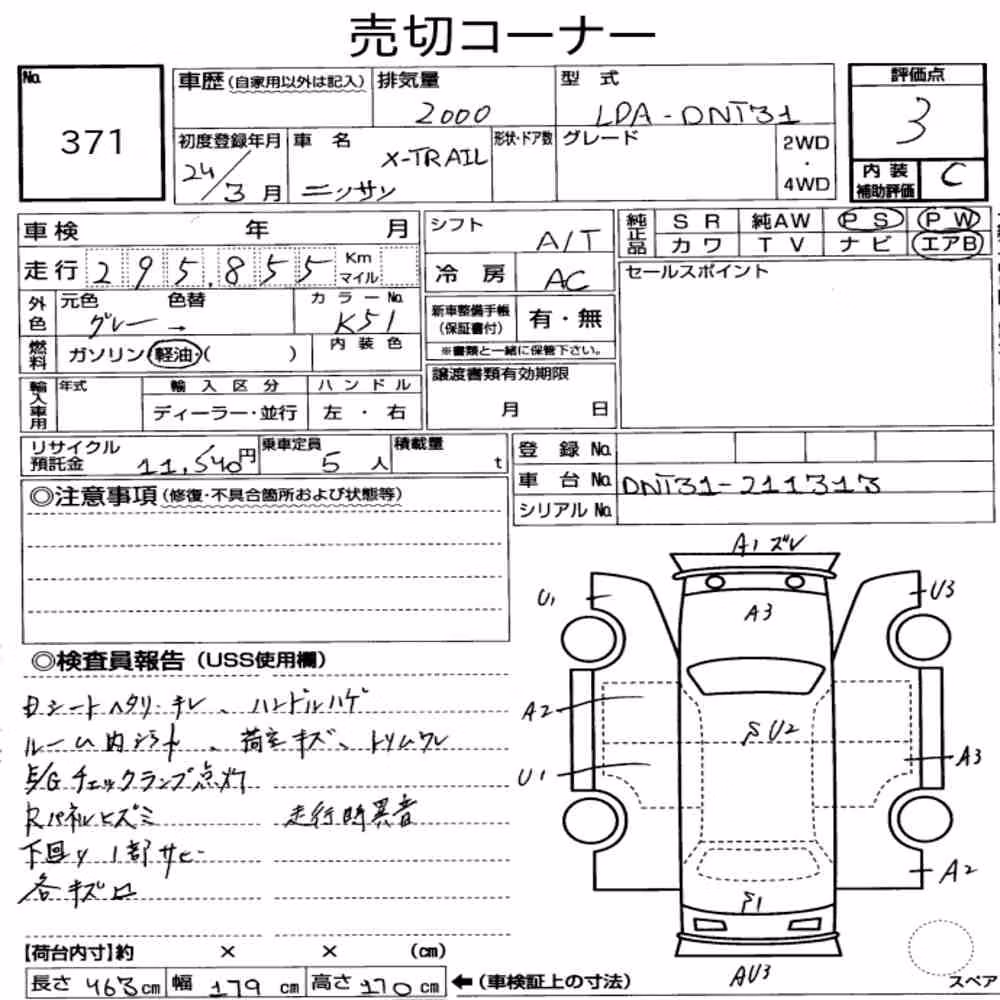 売切コーナー
No.
371
車歴(自家用以外は記入)
排気量
2000
型 式
LDA-DNT31
評価点
3
内装補助評価 C
初度登録年月
24/3月
車 名
X-TRAIL
ニッサン
形状・ドア数
グレード
2WD
・
4WD
車検 年 月
走行 295,855 Km マイル
外色 元色 色替 カラーNo.
グレー → K51
燃料 ガソリン・軽油・( ) 内装色
輸入車用 年式 輸入区分 ハンドル
ディーラー・並行 左・右
シフト A/T
冷房 AC
新車整備手帳(保証書付) 有・無
※書類と一緒に保管下さい。
譲渡書類有効期限
月 日
純正品 SR 純AW PS PW
カワ TV ナビ エアB
セールスポイント
リサイクル預託金 11,540円
乗車定員 5人
積載量 t
登録No.
車台No. DNT31-211313
シリアルNo.
◎注意事項(修復・不具合箇所および状態等)
◎検査員報告(USS使用欄)
Dシートヘタリ・キレ、ハンドルハゲ
ルーム内シラト、荷室キズ、トリムワレ
E/Gチェックランプ点灯
Rパネルヒズミ 走行時異音
下回り1部サビ
各キズ
A1 ズレ
U1
U3
A3
A2
U2
U1
A3
A2
AU3
スペア
【荷台内寸】約 × × (cm)
長さ 463cm 幅 179cm 高さ 170cm ←(車検証上の寸法)